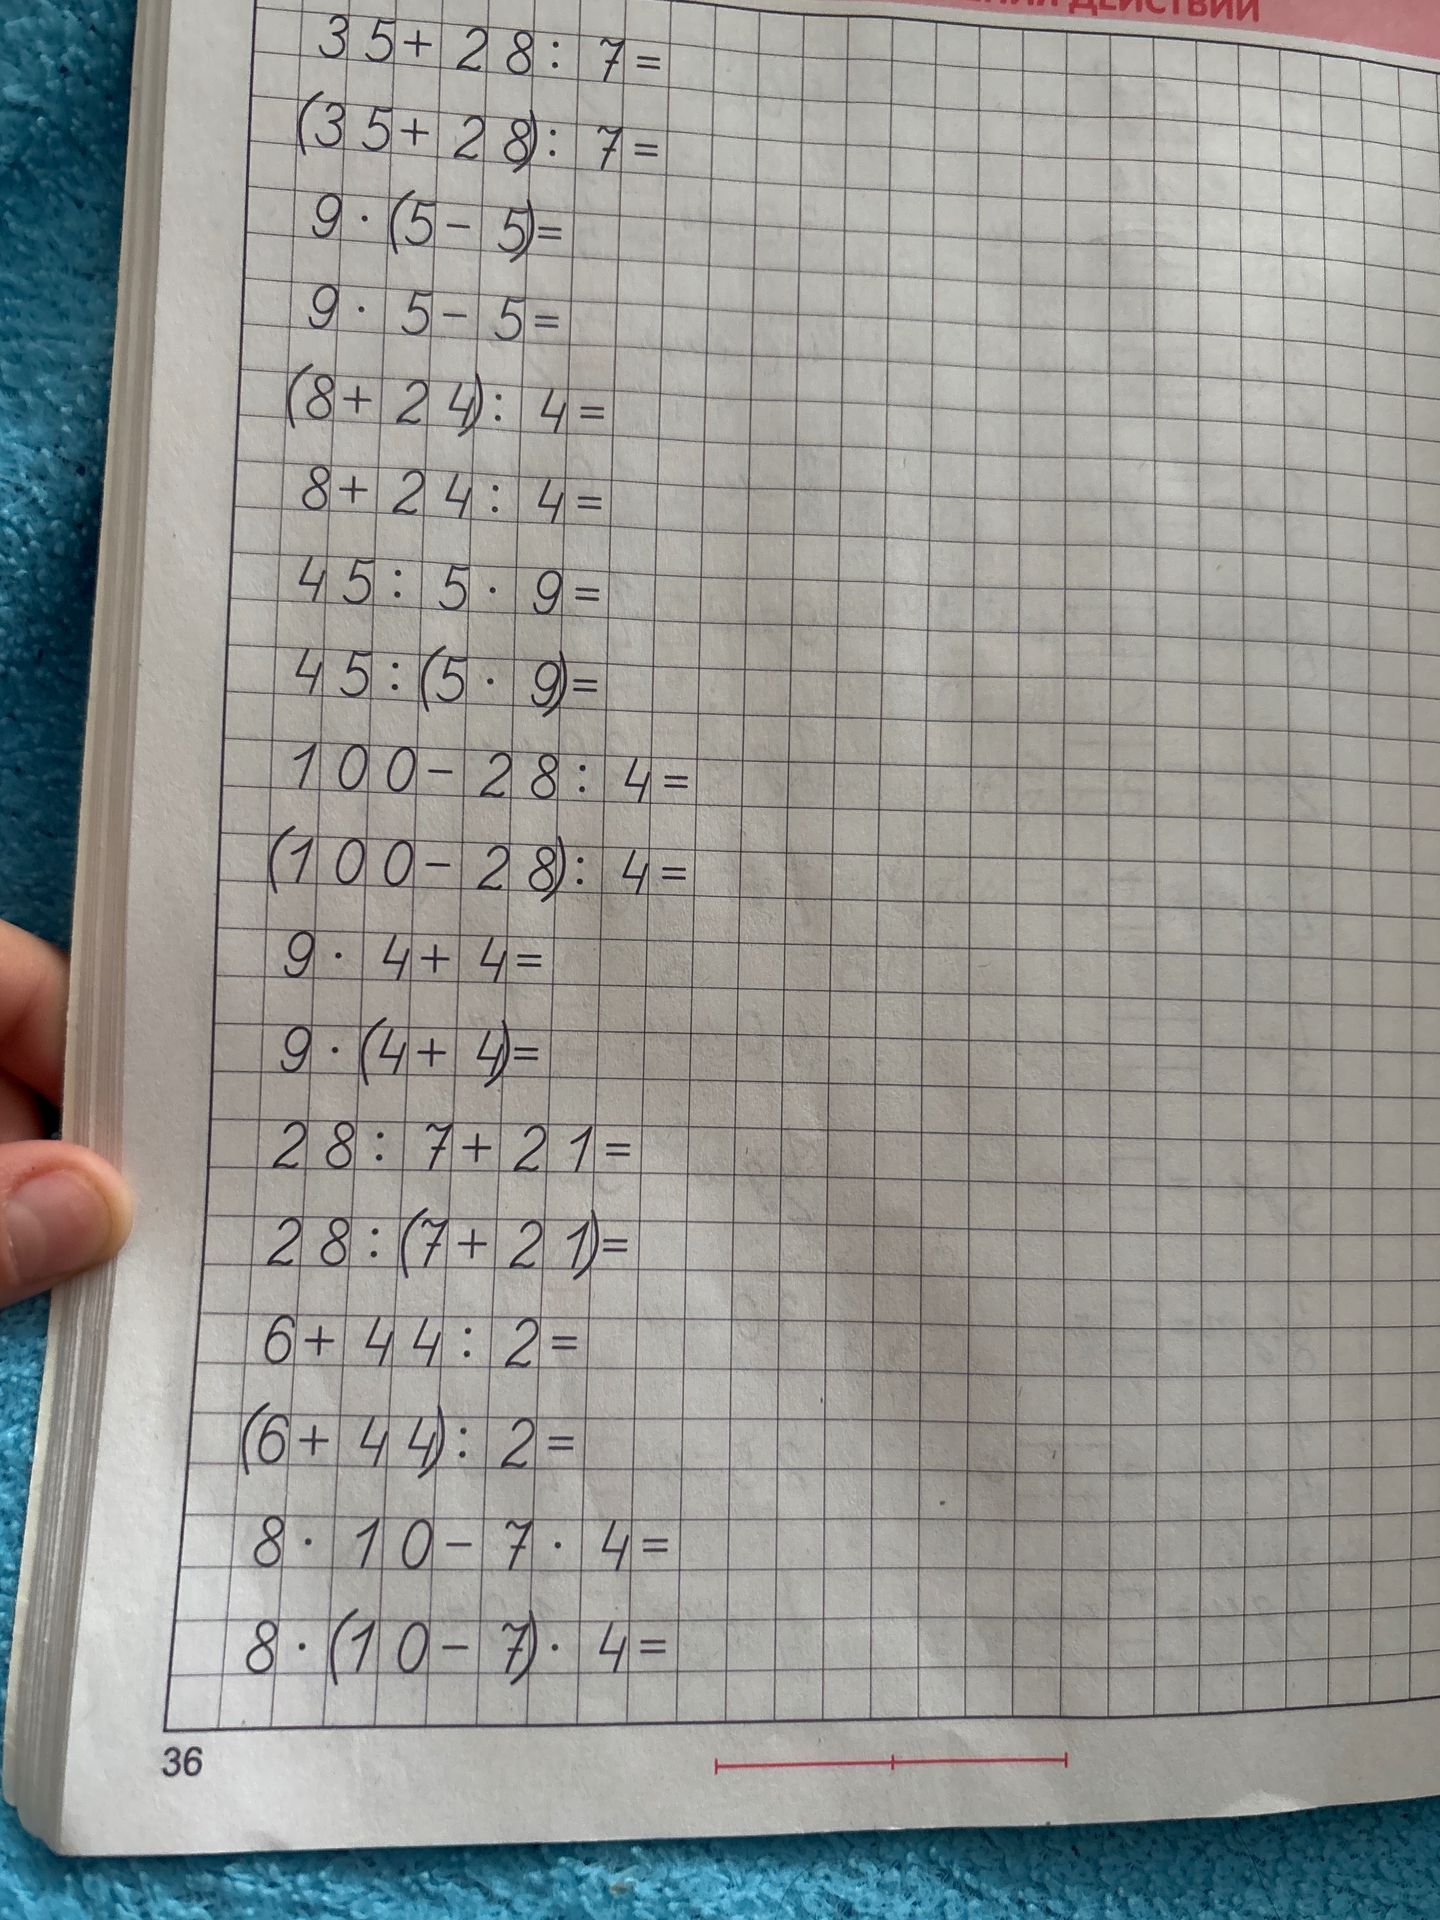 ДЕЙСТВИЙ
35+28:7=
(35+28):7=
9·(5-5)=
9·5-5=
(8+24):4=
8+24:4=
45:5·9=
45:(5·9)=
100-28:4=
(100-28):4=
9·4+4=
9·(4+4)=
28:7+21=
28:(7+21)=
6+44:2=
(6+44):2=
8·10-7·4=
8·(10-7)·4=
36